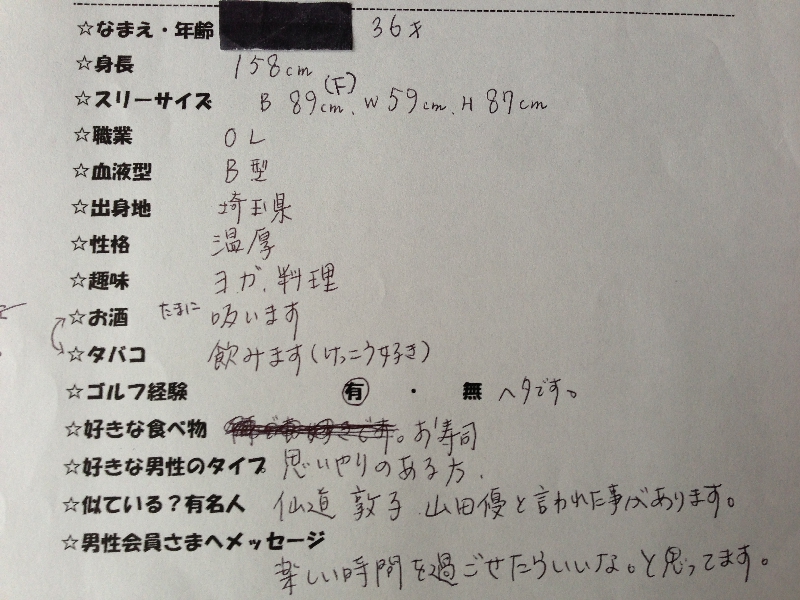 ☆なまえ・年齢 36才
☆身長 158cm
☆スリーサイズ B 89cm(F)、W 59cm、H 87cm
☆職業 OL
☆血液型 B型
☆出身地 埼玉県
☆性格 温厚
☆趣味 ヨガ、料理
☆お酒 たまに 吸います
☆タバコ 飲みます(けっこう好き)
☆ゴルフ経験 有 ・ 無 ヘタです。
☆好きな食べ物 。お寿司
☆好きな男性のタイプ 思いやりのある方、
☆似ている？有名人 仙道 敦子 山田優と言われた事があります。
☆男性会員さまへメッセージ
楽しい時間を過ごせたらいいな。と思ってます。